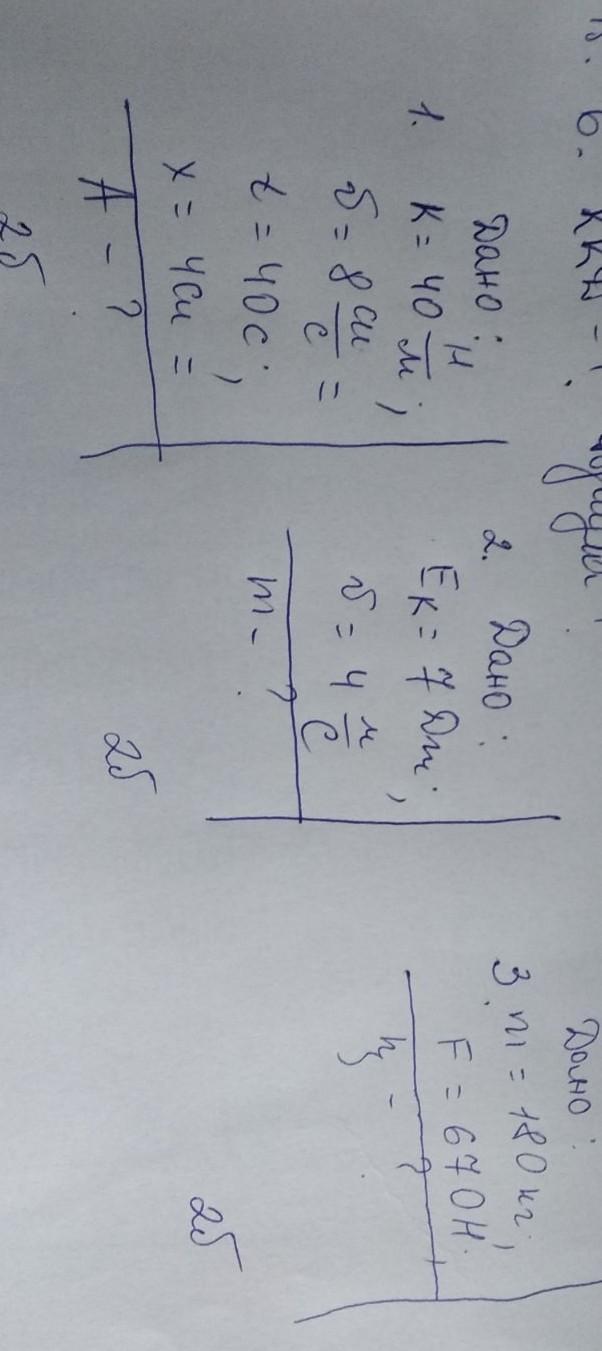 6. ККД - ?
1. Дано:
к = 40 Н/м;
v = 8 см/с =
t = 40 с;
x = 4 см =
A - ?
2б
2. Дано:
Eк = 7 Дж;
v = 4 м/с
m - ?
2б
Дано:
3. m = 180 кг;
F = 670 Н.
η - ?
2б